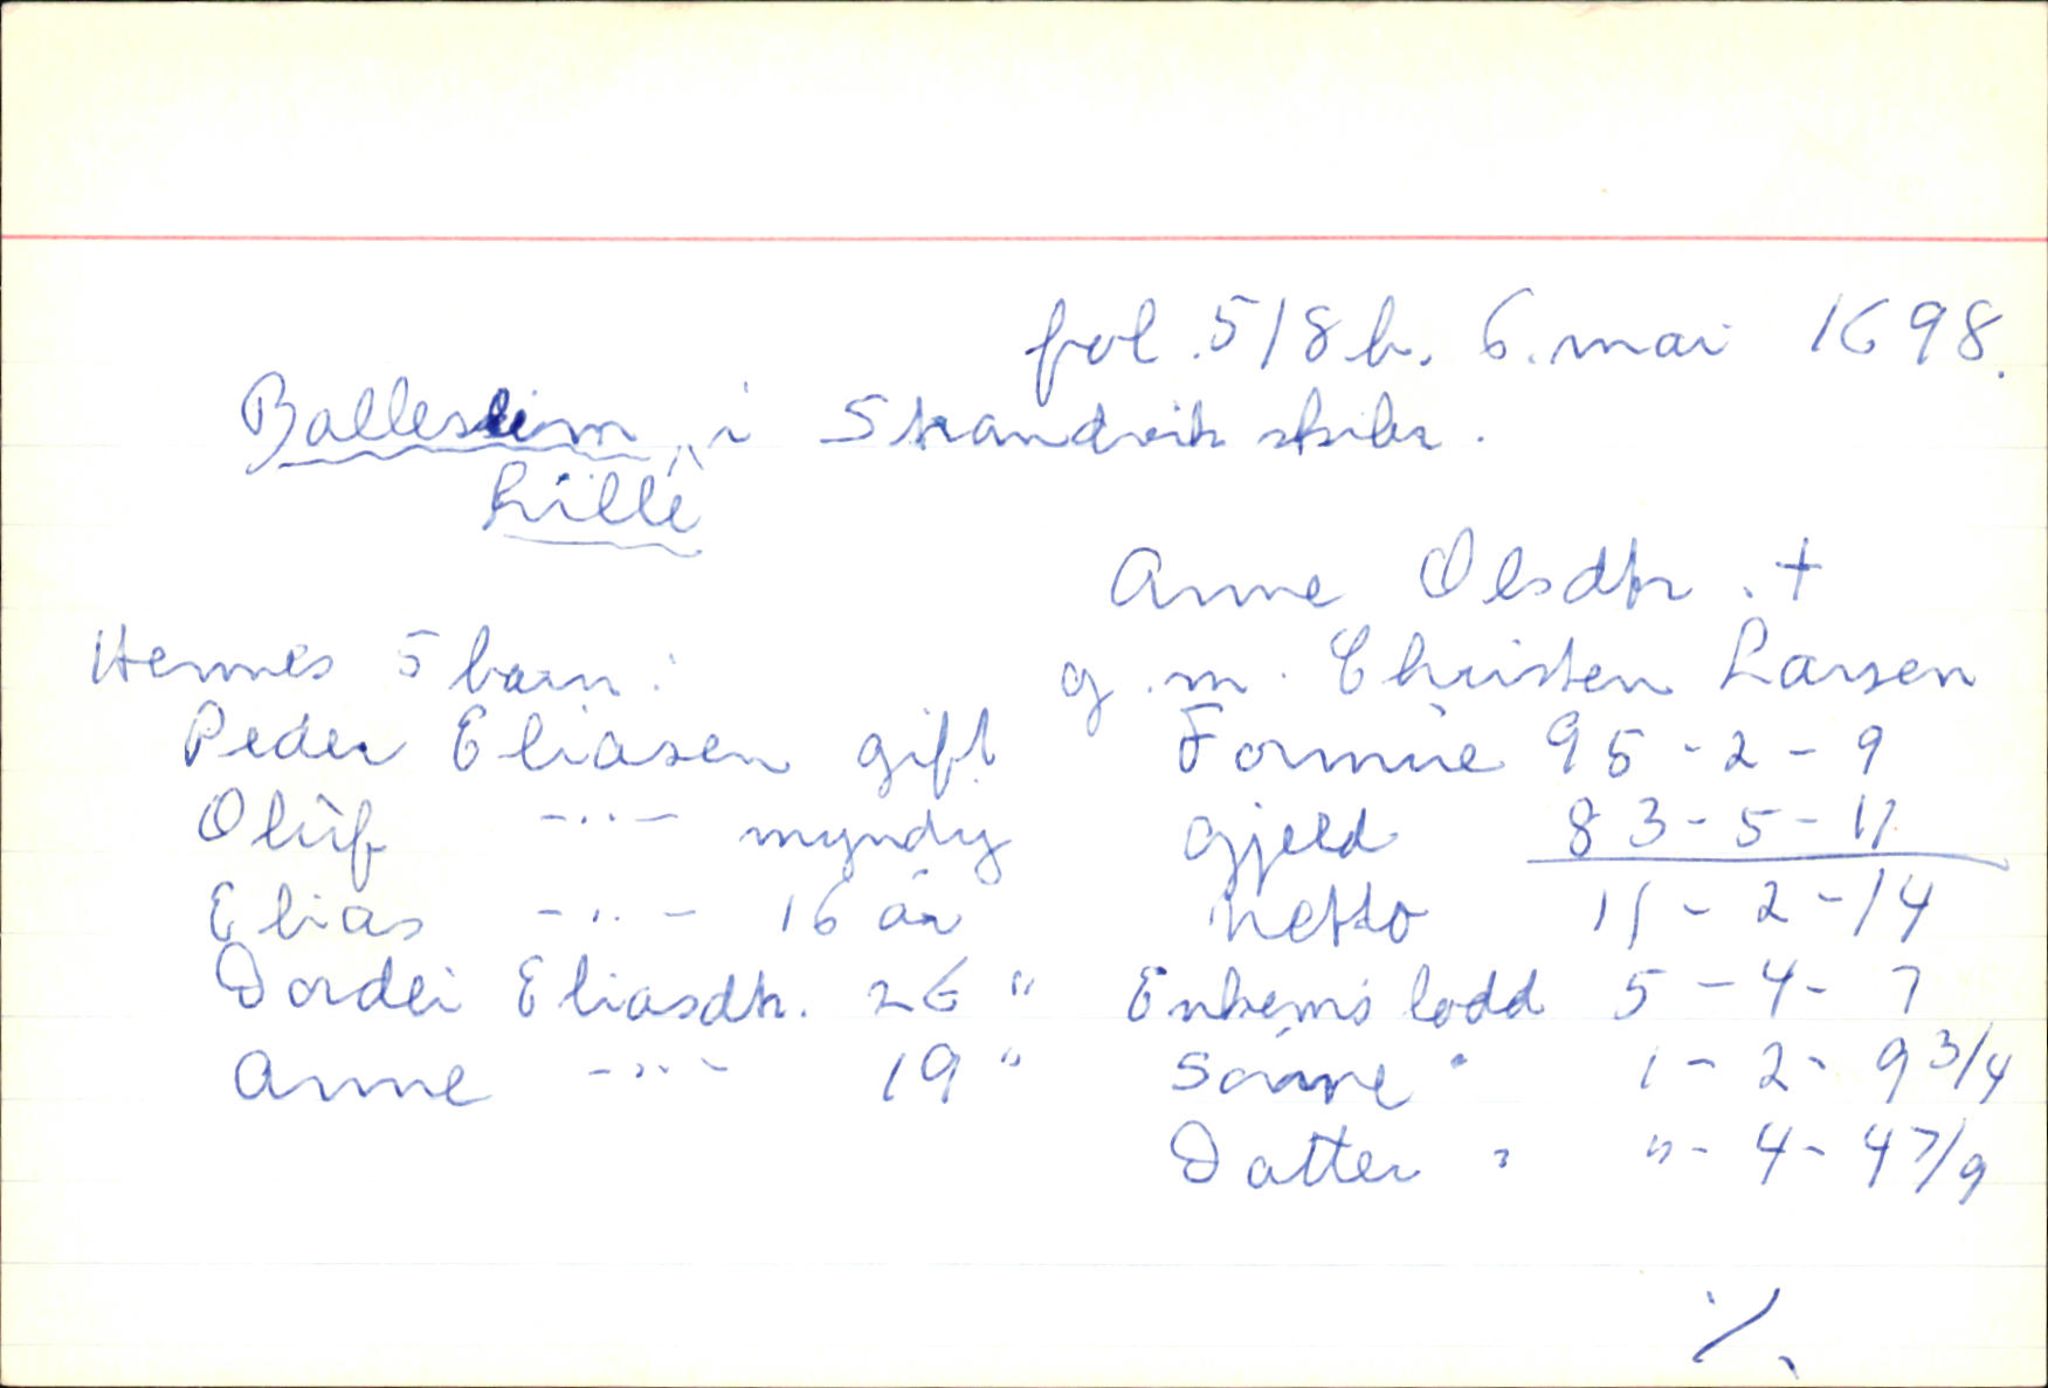 fol. 518 b. 6. mai 1698.
Balleseim, i Skandvik skibr.
Lille
Anne Olsdtr. +
Hennes 5 barn: g. m. Christen Larsen
Peder Eliasen gift Formue 95 - 2 - 9
Oluf -"- myndig gjeld 83 - 5 - 11
Elias -"- 16 år netto 11 - 2 - 14
Dordei Eliasdtr. 26 " Enkem's lodd 5 - 4 - 7
Anne -"- 19 " Sønne " 1 - 2 - 9 3/4
Datter " " - 4 - 4 7/9
./.